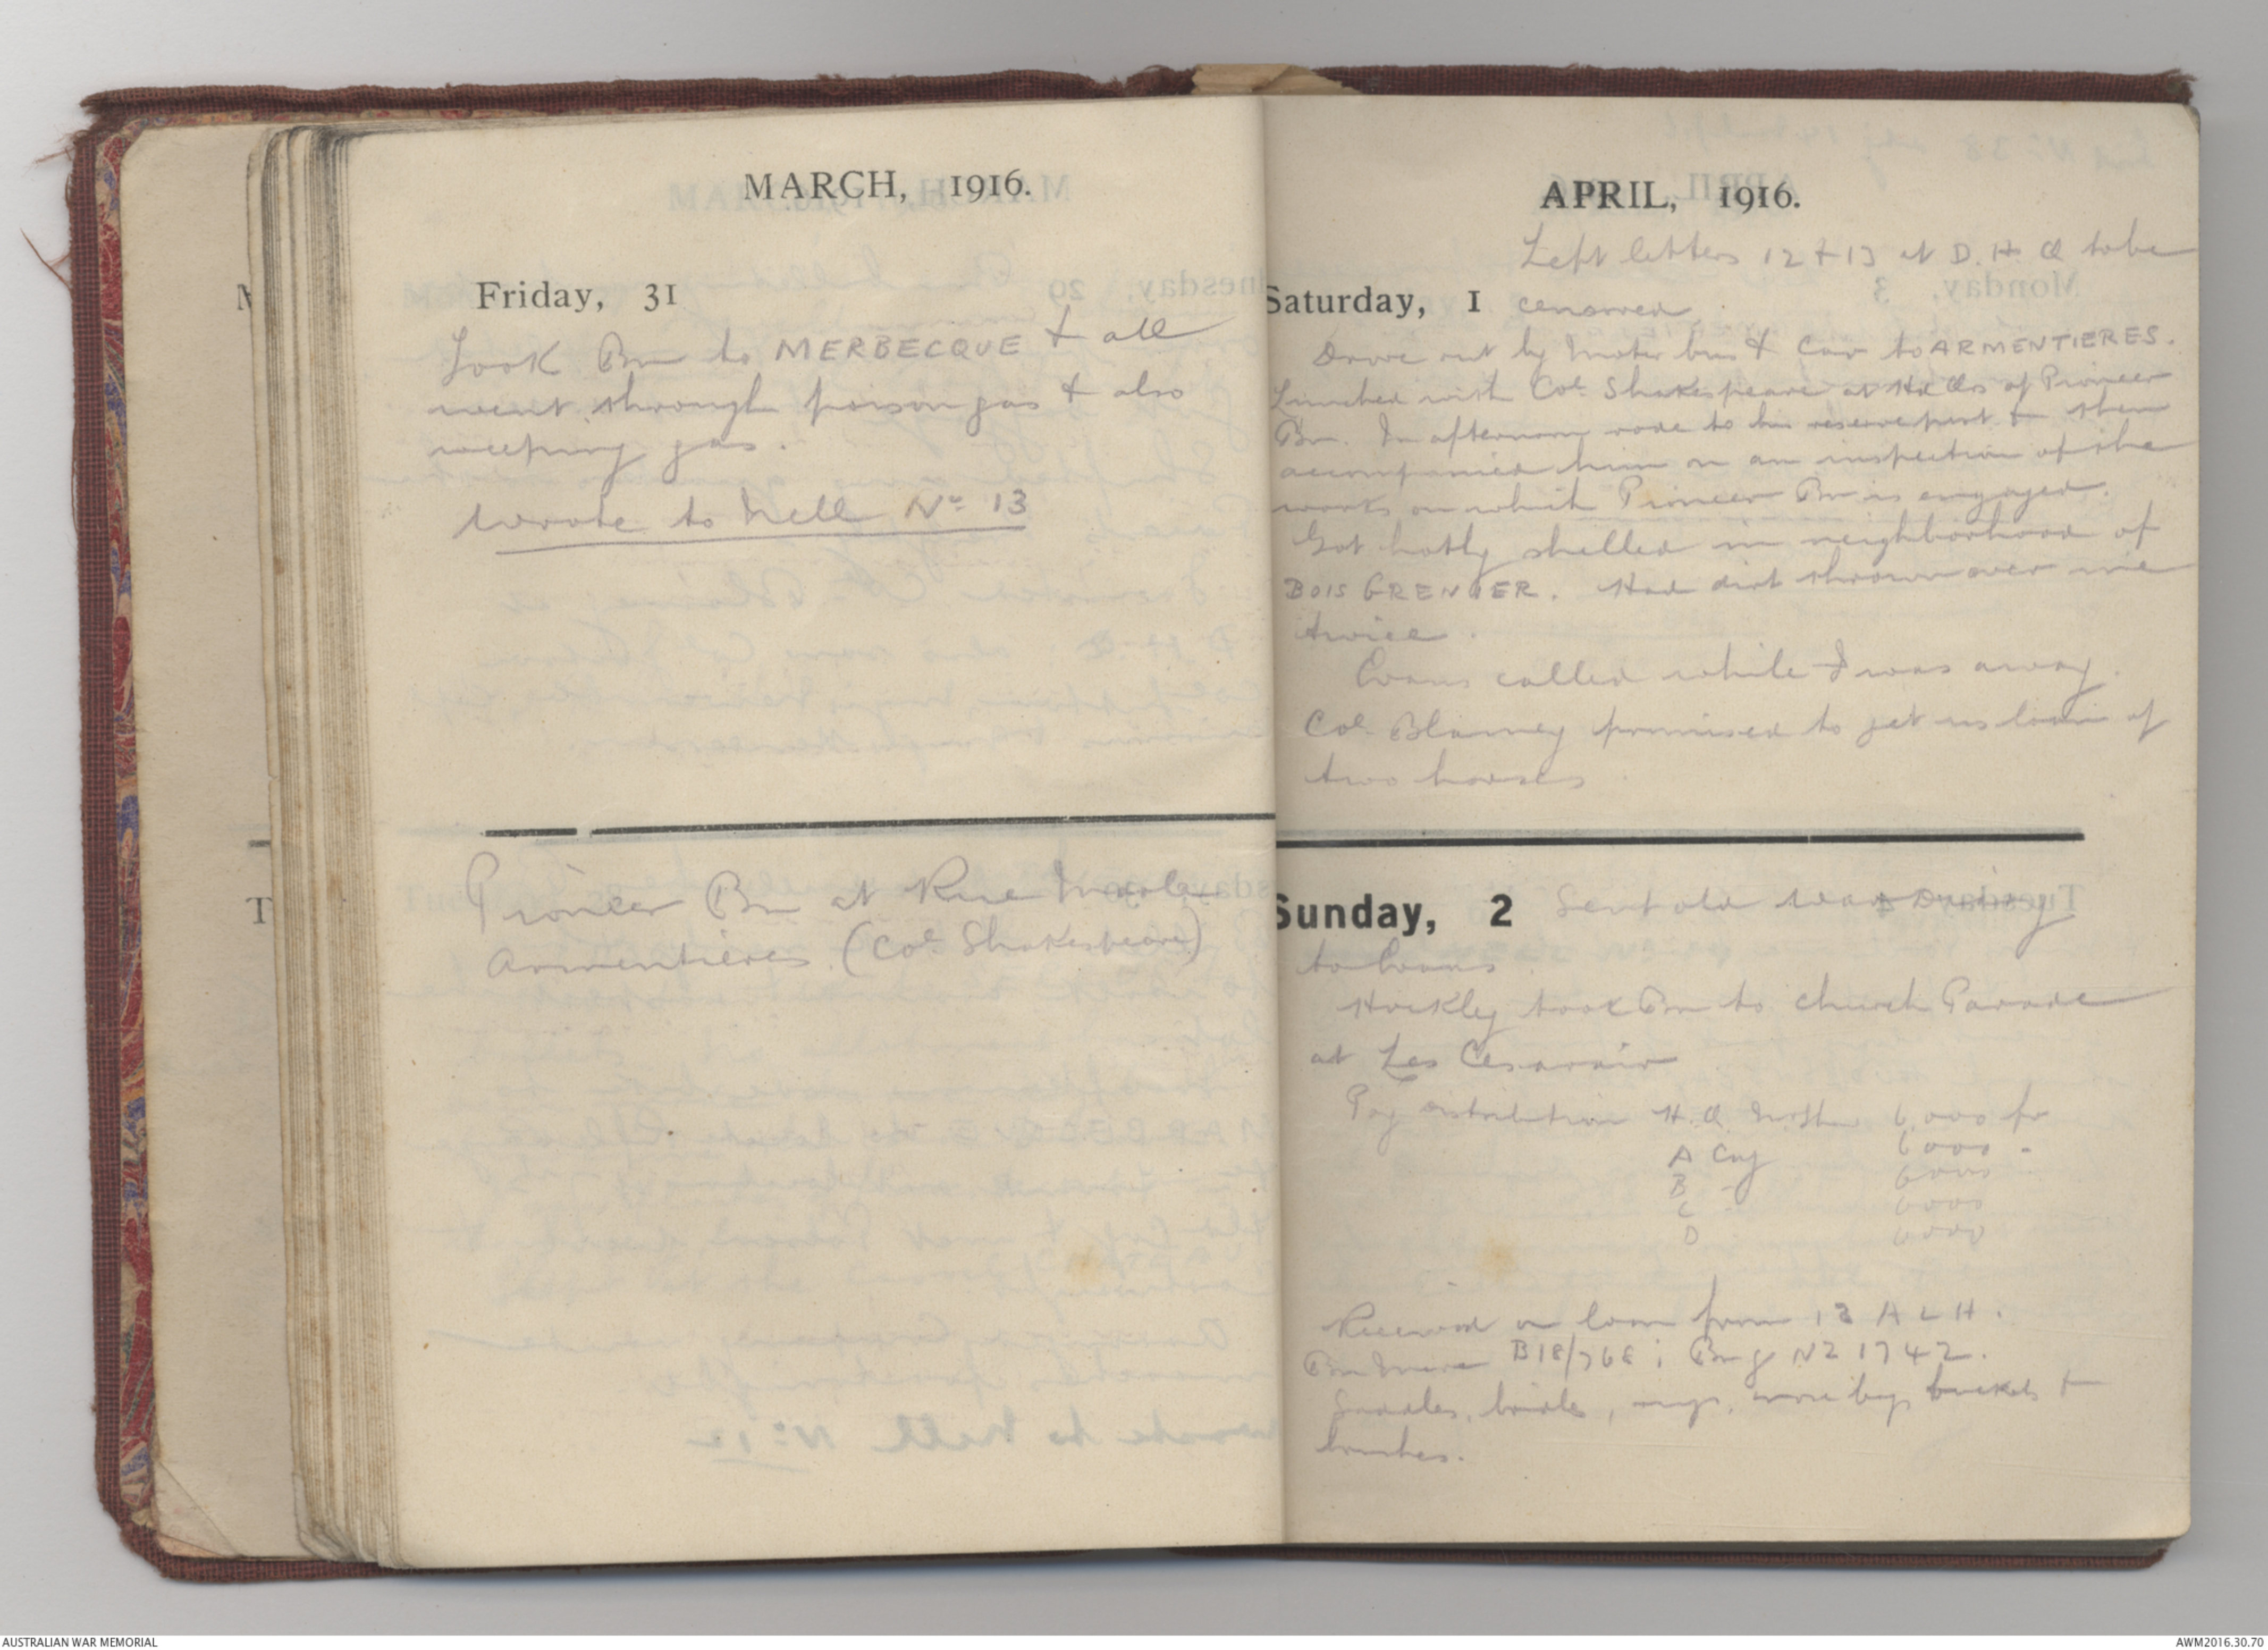 MARCH, 1916.
Friday, 31
Took Bn to MERBECQUE & all
went through poison gas & also
weeping gas.
Wrote to Nell No 13
Pioneer Bn at Rue
Armentieres (Col Shakespeare)
APRIL, 1916.
Left letters 12 & 13 at D.H.Q to be
Saturday, 1 censored.
Drove out by motor bus & car to ARMENTIERES.
Lunched with Col. Shakespeare at Hd Qrs of Pioneer
Bn. In afternoon rode to his reserve post & then
accompanied him on an inspection of the
works on which Pioneer Bn is engaged.
Got hotly shelled in neighborhood of
BOIS GRENIER. Had dirt thrown over me
twice.
Evans called while I was away.
Col. Blamey promised to get us loan of
two horses
Sunday, 2 Sent old war Diary
to Evans.
took Bn to church Parade
at Les
Pay distribution H.Q. 6,000 fr
A Coy 6000 "
B " 6000
C 6000
D 6000
Received on loan from 13 A L H.
Bn mare B18/768; Br g N2 1742.
Saddles, bridles, rugs, nose bags buckets &
brushes.
AUSTRALIAN WAR MEMORIAL
AWM2016.30.70